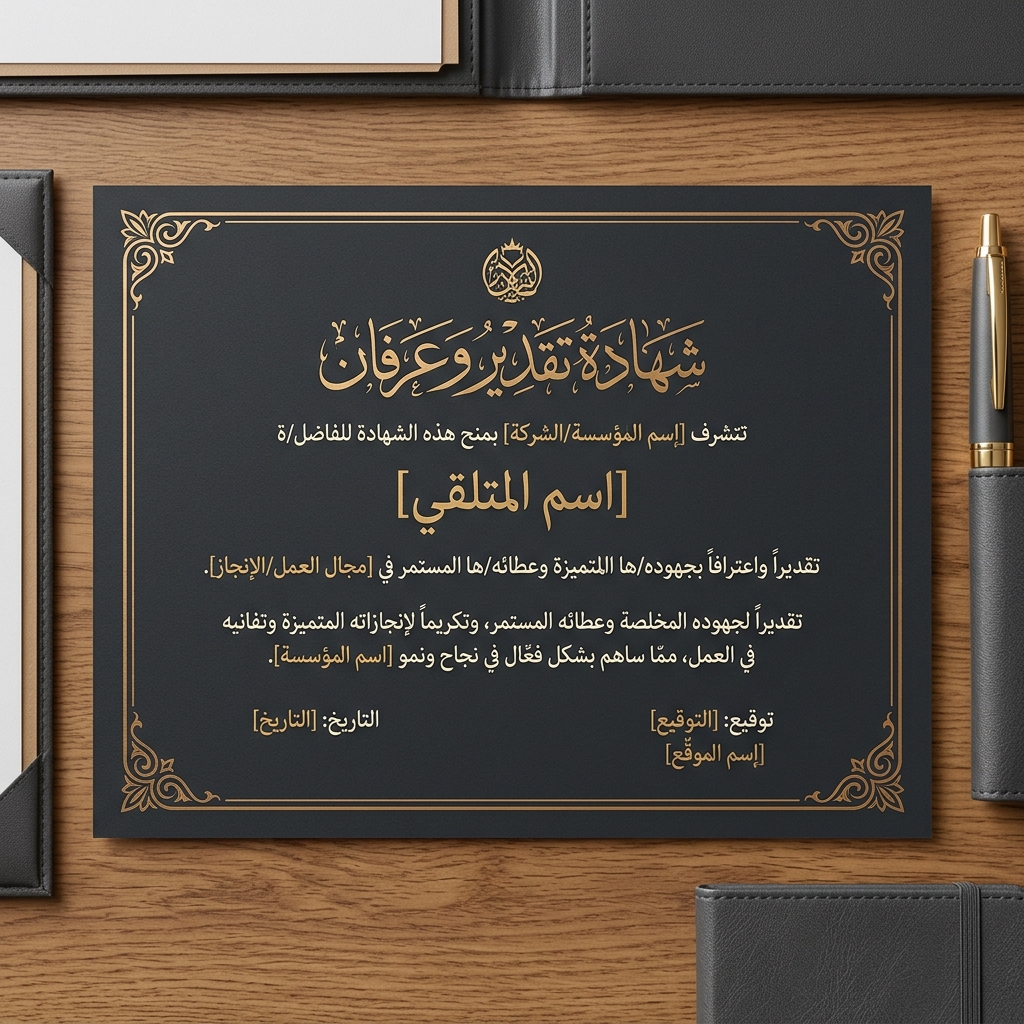 شَهَادَةُ تَقْدِيرُ وَعَرَفَان
تتشرف [إسم المؤسسة/الشركة] بمنح هذه الشهادة للفاضل/ة
[اسم المتلقي]
تقديراً واعترافاً بجهوده/ها المتميزة وعطائه/ها المستمر في [مجال العمل/الإنجاز].
تقديراً لجهوده المخلصة وعطائه المستمر، وتكريماً لإنجازاته المتميزة وتفانيه
في العمل، ممّا ساهم بشكل فعّال في نجاح ونمو [اسم المؤسسة].
توقيع: [التوقيع]
[إسم الموقّع]
التاريخ: [التاريخ]